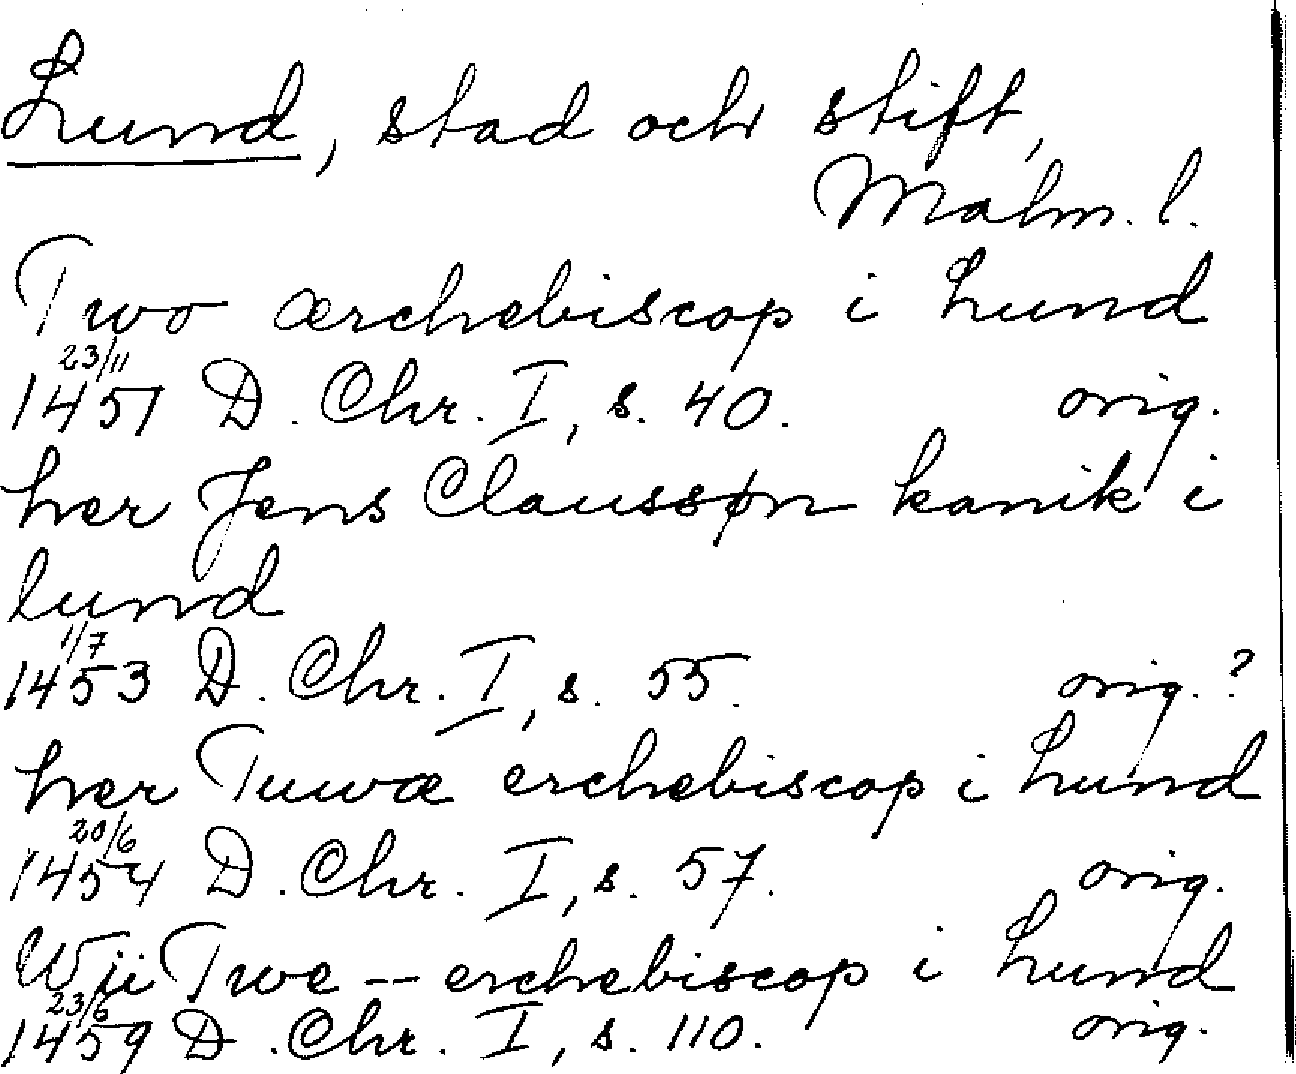 Lund, stad och stift,
Malm. l.
Two ærchebiscop i Lund
23/11
1451 D. Chr. I, s. 40. orig.
her Jens Claussøn kanik i
lund
1/7
1453 D. Chr. I, s. 55. orig.?
her Tuwæ erchebiscop i Lund
20/6
1454 D. Chr. I, s. 57. orig.
Wii Twe -- erchebiscop i Lund
23/6
1459 D. Chr. I, s. 110. orig.